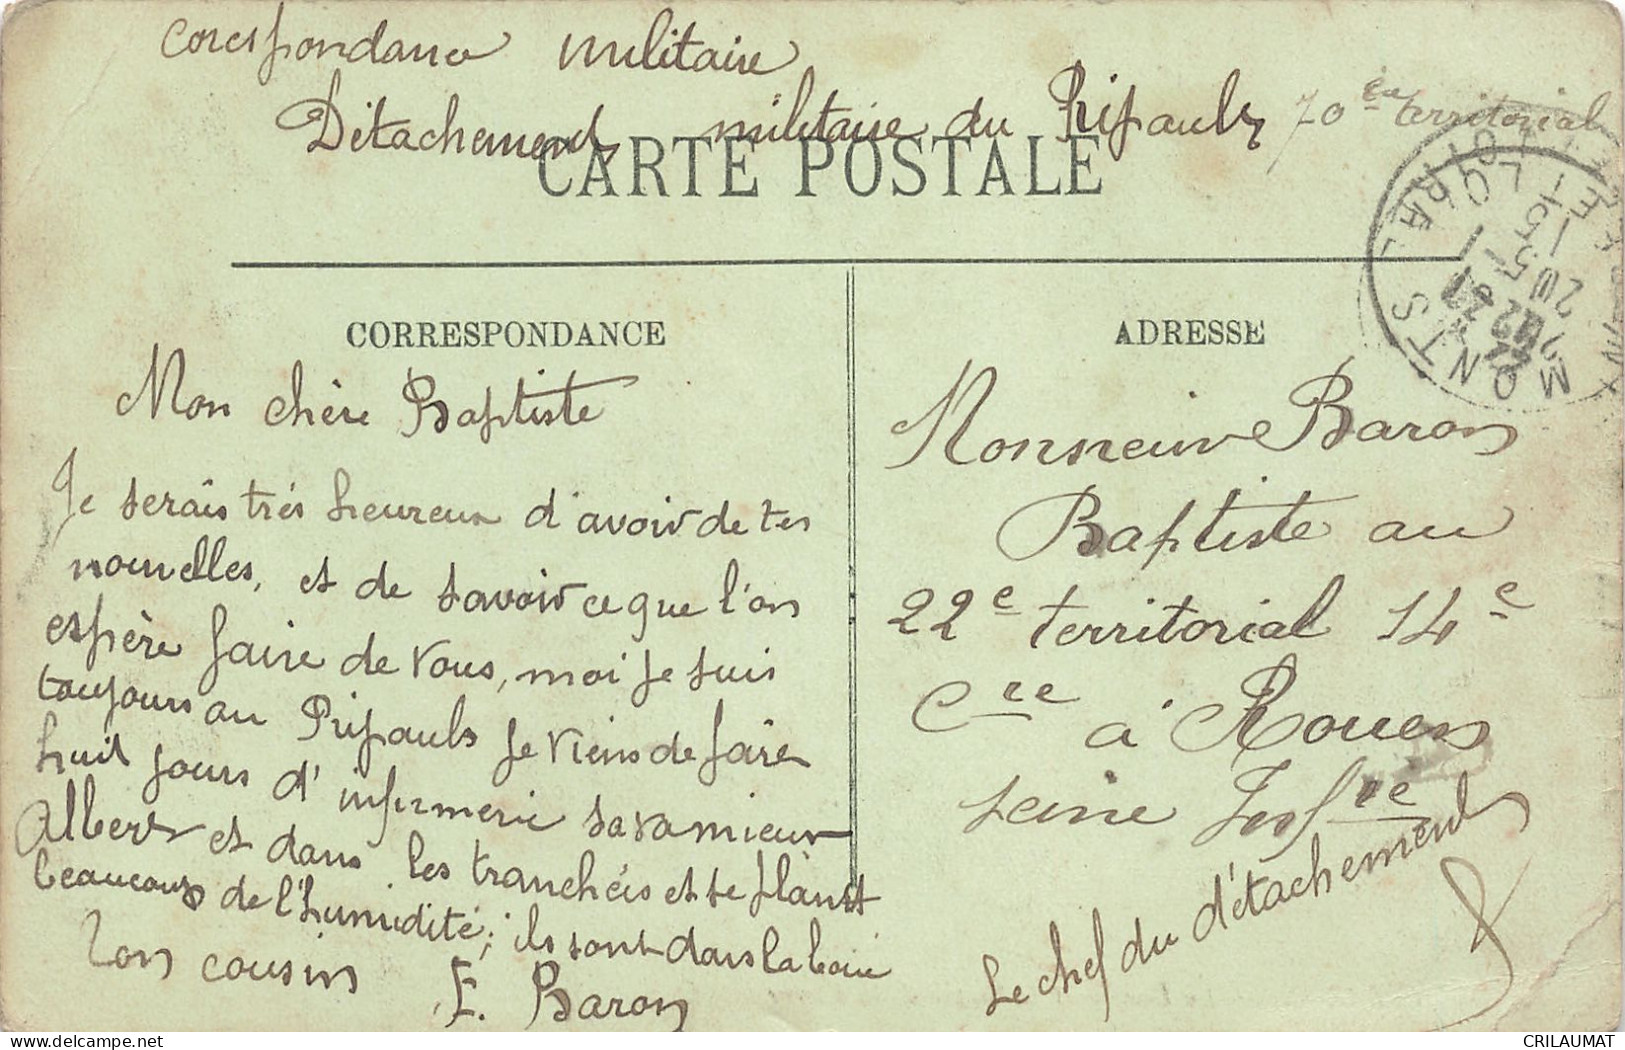 Corespondance militaire
Détachement militaire du Ripault 70ème territorial
CARTE POSTALE
MONTS
CORRESPONDANCE
Mon chère Baptiste
Je serais très heureux d'avoir de tes
nouvelles, et de savoir ce que l'on
espère faire de vous, moi je suis
toujours au Ripault je viens de faire
huit jours d'infirmerie sa va mieux
Albert et dans les tranchéis et se plaint
beaucoup de l'humidité; ils sont dans la boue
Ton cousin
E. Baron
ADRESSE
Monsieur Baron
Baptiste au
22e territorial 14e
Cie à Rouen
Seine Infre
Le chef du détachement
CRILAUMAT